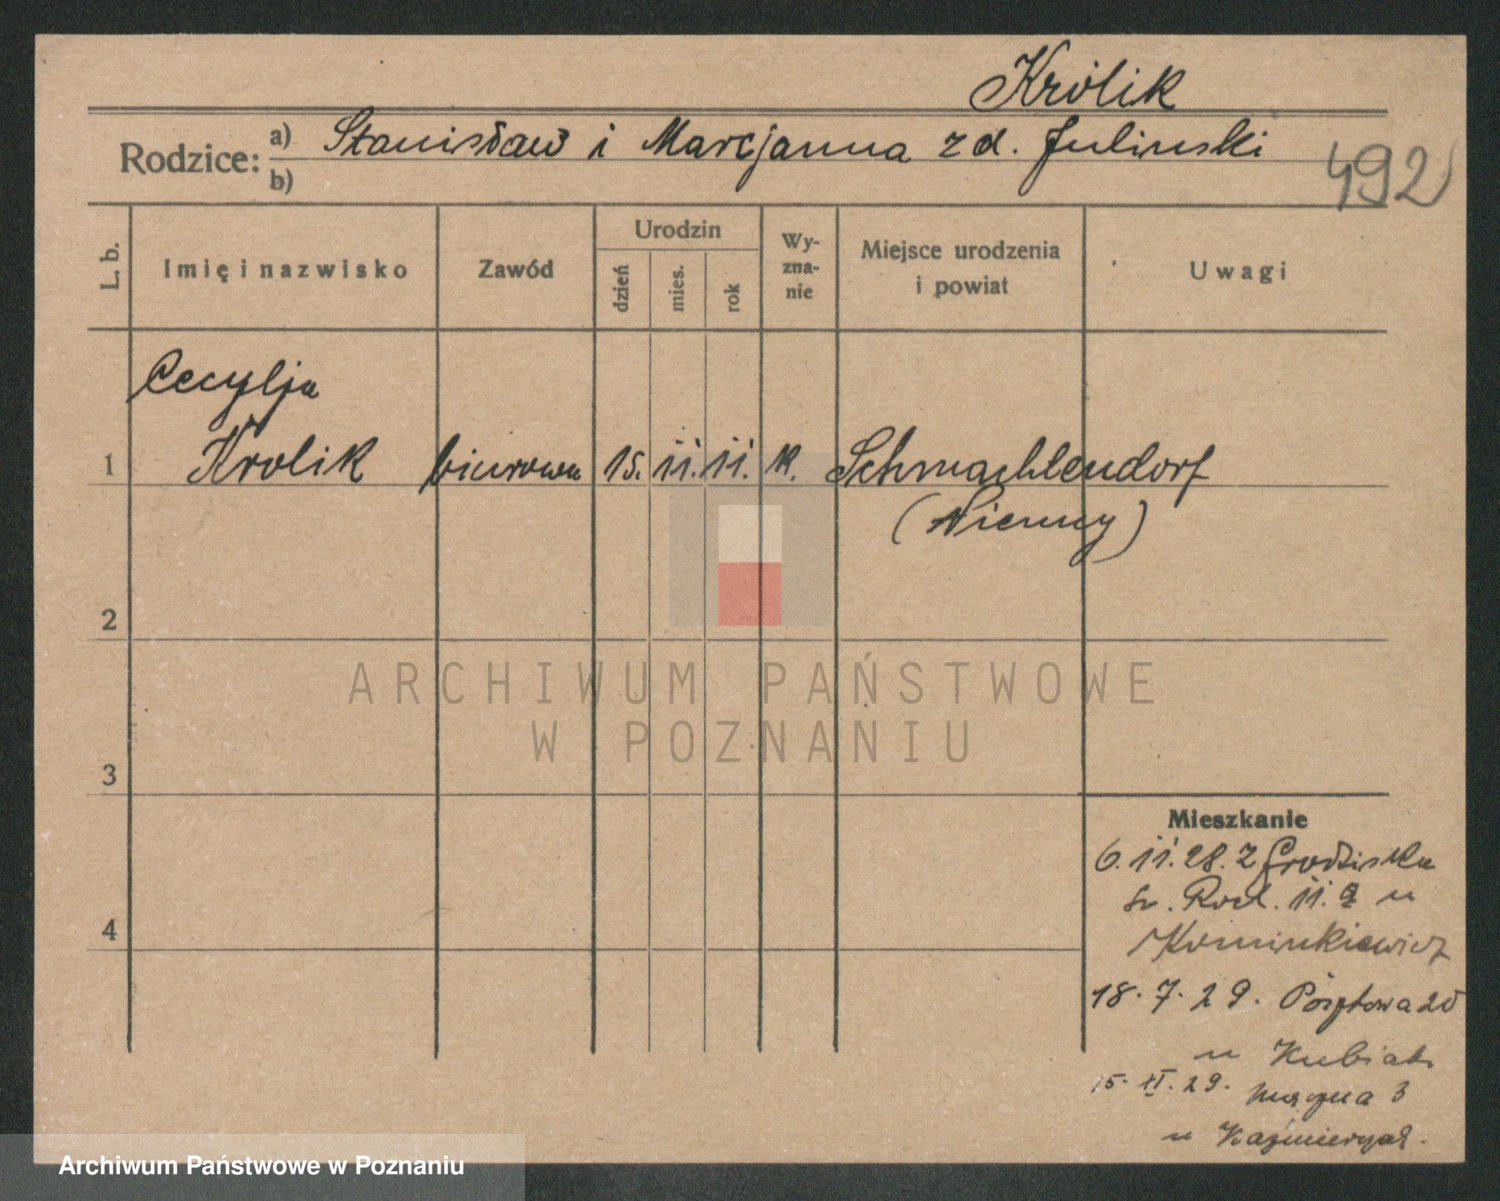 Królik
Rodzice: a) Stanisław i Marcjanna z d. Julinski
b)
492
L. b.
Imię i nazwisko
Zawód
Urodzin
dzień
mies.
rok
Wy-
zna-
nie
Miejsce urodzenia
i powiat
Uwagi
Cecylja
1 Krolik biurowa 15. 11. 11. k. Schmachtendorf
(Niemcy)
2
ARCHIWUM PAŃSTWOWE
W POZNANIU
3
4
Mieszkanie
6. 11. 28. z Grodziska
Roch. 11. u
Kominkiewicz
18. 7. 29. Pocztowa 20
u Kubiak
15. XI. 29. 3
u Kaźmierczak.
Archiwum Państwowe w Poznaniu